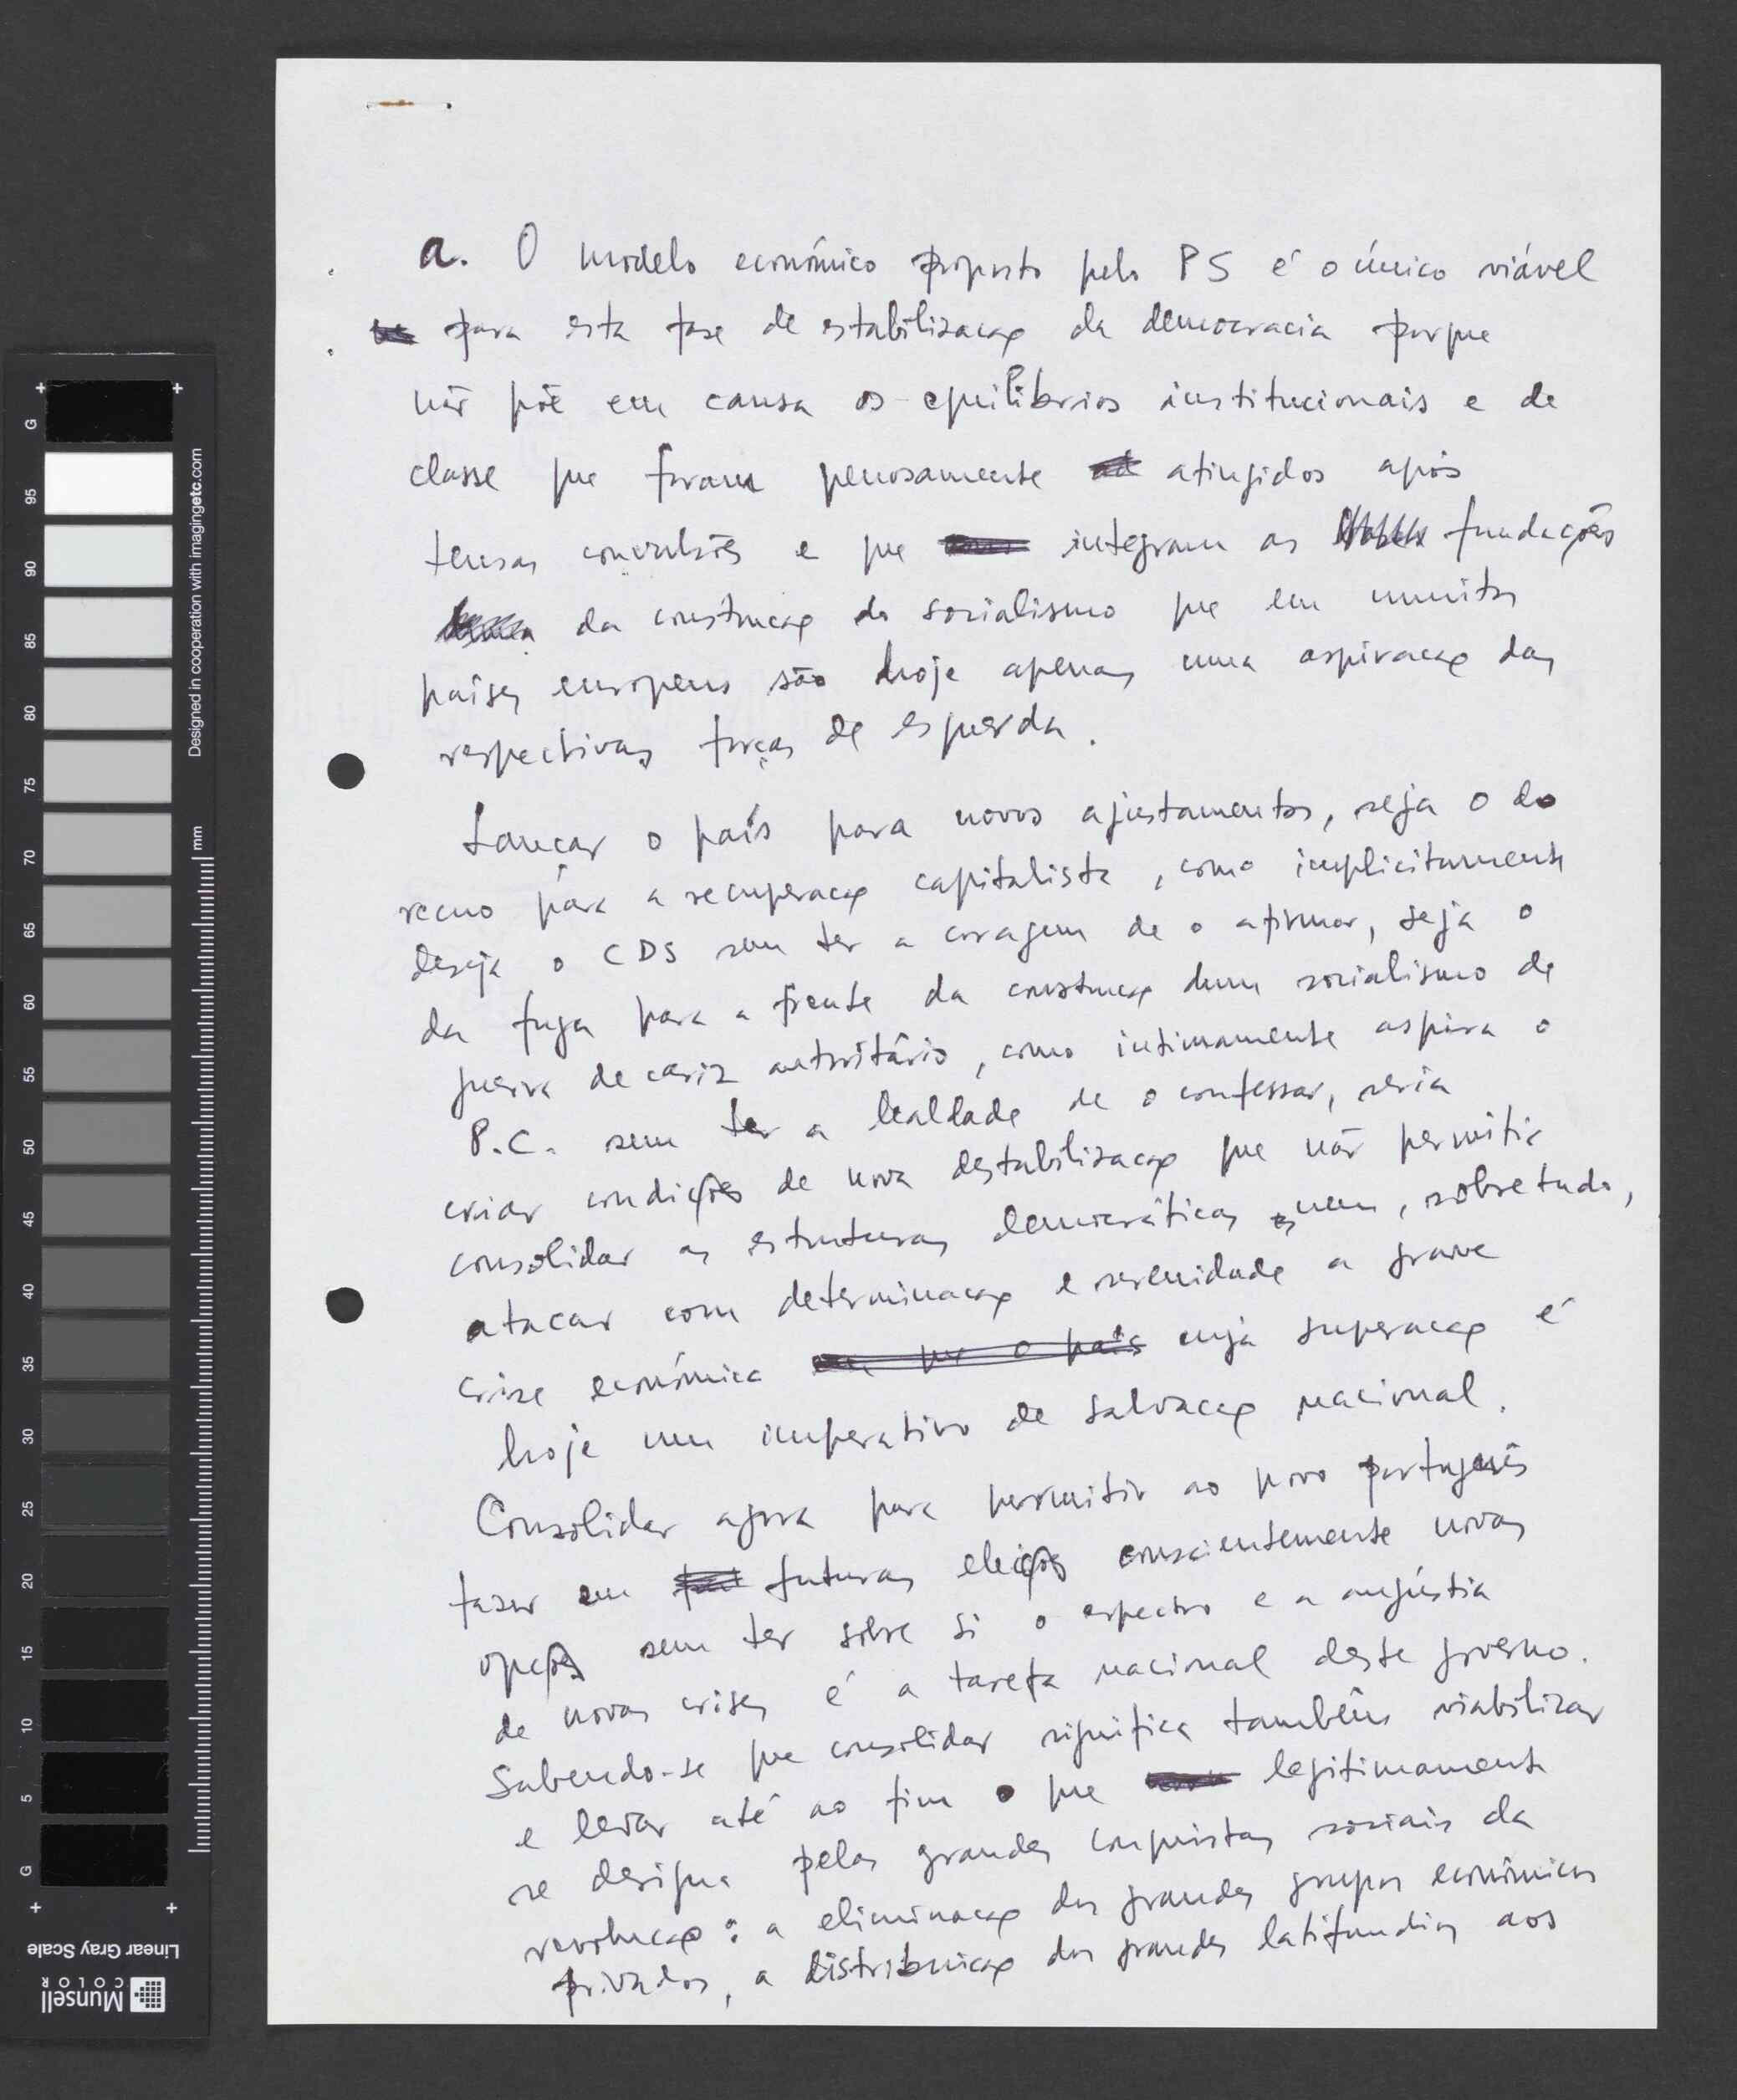 a. O modelo económico proposto pelo PS é o único viável
para esta fase de estabilização da democracia porque
não põe em causa os equilíbrios institucionais e de
classe que foram penosamente atingidos após
tensas convulsões e que integram as fundações
da construção do socialismo que em muitos
países europeus são hoje apenas uma aspiração das
respectivas forças de esquerda.
Lançar o país para novos ajustamentos, seja o do
recuo para a recuperação capitalista, como implicitamente
deseja o CDS sem ter a coragem de o afirmar, seja o
da fuga para a frente da construção dum socialismo de
guerra de cariz autoritário, como intimamente aspira o
P.C. sem ter a lealdade de o confessar, seria
criar condições de nova destabilização que não permitia
consolidar as estruturas democráticas nem, sobretudo,
atacar com determinação e serenidade a grave
crise económica em que o país cuja superação é
hoje um imperativo de salvação nacional.
Consolidar agora para permitir ao povo português
fazer em futuras eleições conscientemente novas
opções sem ter sobre si o espectro e a angústia
de novas crises é a tarefa nacional deste governo.
Sabendo-se que consolidar significa também viabilizar
e levar até ao fim o que legitimamente
se designa pelas grandes conquistas sociais da
revolução: a eliminação dos grandes grupos económicos
privados, a distribuição dos grandes latifundios aos
G 95 90 85 80 75 70 65 60 55 50 45 40 35 30 25 20 15 10 5 G
Designed in cooperation with imagingetc.com
mm
Linear Gray Scale
Munsell
COLOR